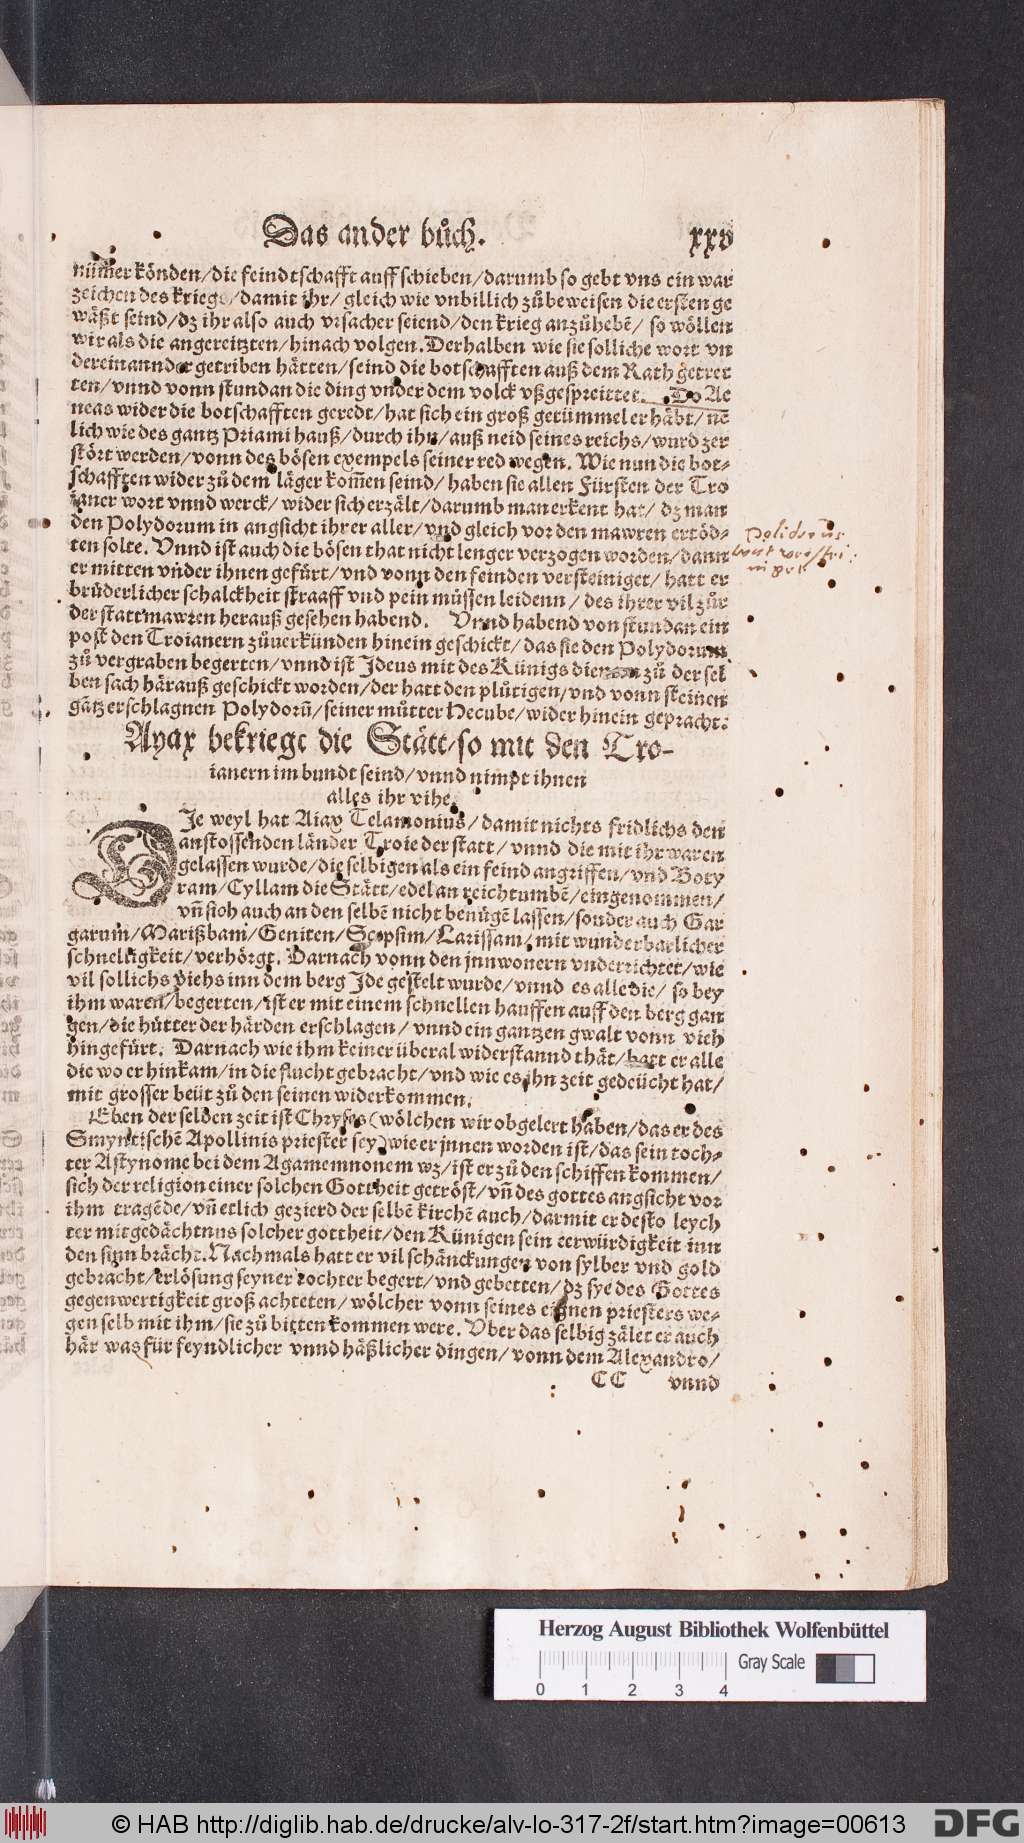 Das ander bůch. xxv
nüm̃er könden/die feindtschafft auff schieben/darumb so gebt vns ein war
zeichen des kriegs/damit ihr/ gleich wie vnbillich zůbeweisen die ersten ge
wäßt seind/dz ihr also auch vrsacher seiend/den krieg anzůhebẽ/ so wöllen
wir als die angereitzten/hinach volgen. Derhalben wie sie solliche wort vn
dereinannder getriben hätten/seind die botschafften auß dem Rath getret
ten/vnnd vonn stundan die ding vnder dem volck vßgespreittet. Do Ae
neas wider die botschafften geredt/hat sich ein groß getümmel erhäbt/ nẽ
lich wie des gantz Priami hauß/durch ihn/auß neid seines reichs/wurd zer
stört werden/vonn des bösen exempels seiner red wegen. Wie nun die bot-
schafften wider zů dem läger kom̃en seind/haben sie allen Fürsten der Tro
ianer wort vnnd werck/wider sich erzält/darumb man erkent hat/ dz man
den Polydorum in angsicht ihrer aller/vnd gleich vor den mawren ertöd-
ten solte. Vnnd ist auch die bösen that nicht lenger verzogen worden/dann
er mitten vnder ihnen gefürt/vnd vonn den feinden versteiniget/ hatt er
brüderlicher schalckheit straaff vnd pein müssen leidenn/des ihrer vil zůr
der statt mawren herauß gesehen habend. Vnnd habend von stundan ein
post den Troianern zůuerkünden hinein geschickt/das sie den Polydorum
zů vergraben begerten/vnnd ist Ideus mit des Künigs dienern zů der sel
ben sach härauß geschickt worden/der hatt den plůtigen/vnd vonn steinen
gãtz erschlagnen Polydorũ/seiner můtter Hecube/wider hinein gepracht.
Polidorus
Ayax bekriegt die Stätt/so mit den Tro-
ianern im bundt seind/vnnd nimpt ihnen
alles ihr vihe.
DIe weyl hat Aiax Telamonius/damit nichts fridlichs den
anstossenden länder Troie der statt/ vnnd die mit ihr waren
gelassen wurde/die selbigen als ein feind angriffen/vnd Boty
ram/Cyllam die Stätt/edel an reichtumbẽ/eingenommen/
vñ sich auch an den selbẽ nicht benügẽ lassen/sonder auch Gar
garum/Marißbam/Geniten/Scepsim/Larissam/mit wunderbarlicher
schnelligkeit/verhörgt. Darnach vonn den jnnwonern vnderrichtet/wie
vil sollichs viehs inn dem berg Ide gestelt wurde/vnnd es alle die/ so bey
ihm waren/begerten/ist er mit einem schnellen hauffen auff den berg gan
gen/die hütter der härden erschlagen/ vnnd ein gantzen gwalt vonn vieh
hingefürt. Darnach wie ihm keiner überal widerstannd thät/hatt er alle
die wo er hinkam/in die flucht gebracht/vnd wie es ihn zeit gedeücht hat/
mit grosser beüt zů den seinen widerkommen.
Eben der selben zeit ist Chryses (wölchen wir obgelert haben/das er des
Smyntischẽ Apollinis priester sey) wie er jnnen worden ist/das sein toch-
ter Astynome bei dem Agamemnonem wz/ist er zů den schiffen kommen/
sich der religion einer solchen Gottheit getröst/vñ des gottes angsicht vor
ihm tragẽde/vñ etlich gezierd der selbẽ kirchẽ auch/darmit er desto leych
ter mit gedächtnus solcher gottheit/den Künigen sein eerwürdigkeit inn
den sinn brächt. Nachmals hatt er vil schänckungen von sylber vnd gold
gebracht/erlösung seyner tochter begert/vnd gebetten/dz sye des Gottes
gegenwertigkeit groß achteten/wölcher vonn seines eignen priesters we-
gen selb mit ihm/sie zů bitten kommen were. Vber das selbig zälet er auch
här was für feyndlicher vnnd häßlicher dingen/vonn dem Alexandro/
CC vnnd
Herzog August Bibliothek Wolfenbüttel
Gray Scale
0 1 2 3 4
© HAB http://diglib.hab.de/drucke/alv-lo-317-2f/start.htm?image=00613 DFG